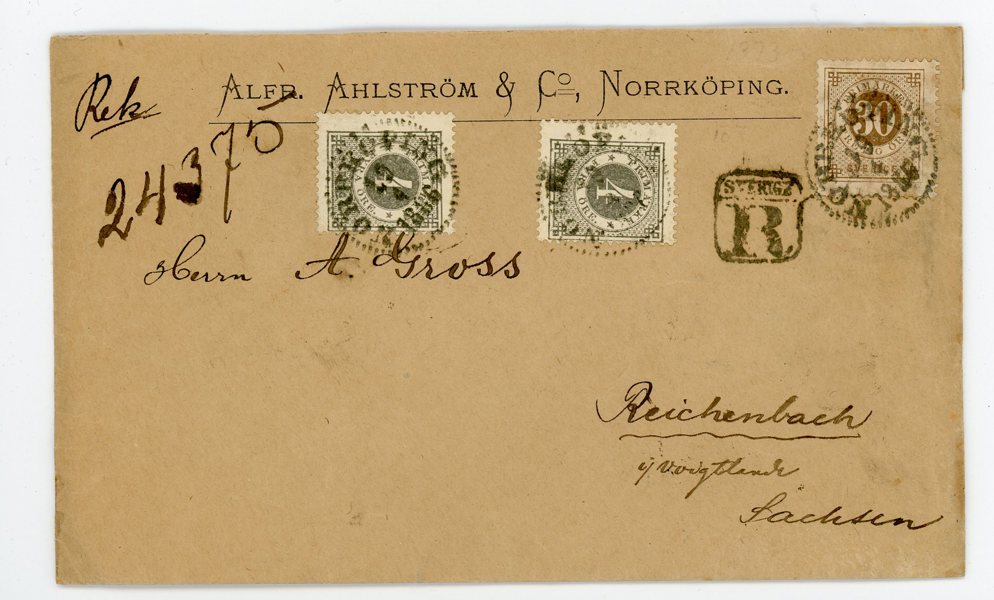 Rek.
ALFR. AHLSTRÖM & Co, NORRKÖPING.
24375
30
4
4
SVERIGE
R
Herrn A. Gross
Reichenbach
i/ Voigtlande
Sachsen